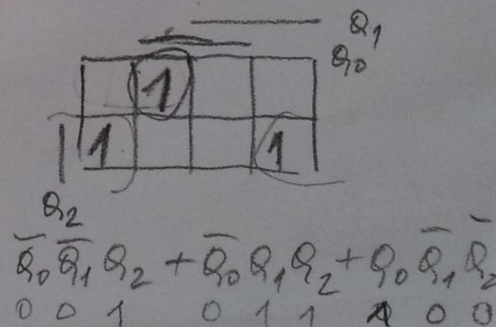 Q₁
Q₀
1
1 1
Q₂
Q̅₀ Q̅₁ Q₂ + Q̅₀ Q₁ Q₂ + Q₀ Q̅₁ Q̅₂
0 0 1 0 1 1 1 0 0